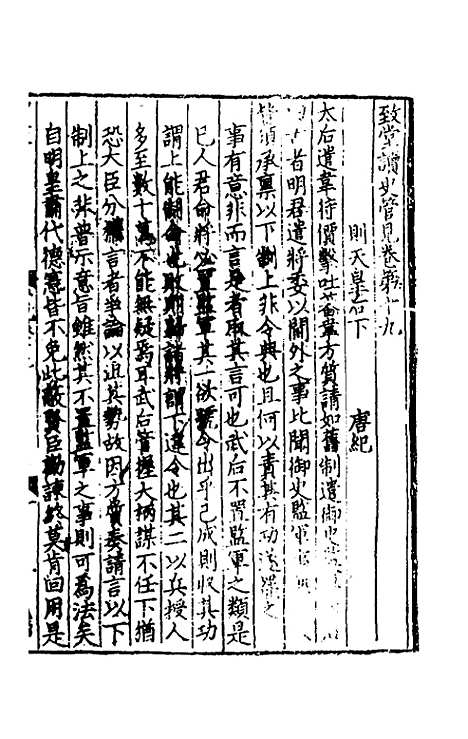 致堂讀史管見卷第十九
則天皇后下 唐紀
太后遣韋待價擊吐蕃韋方質請如舊制遣御史監軍
者明君遣將委以閫外之事比聞御史監軍
皆須承禀以下制上非令典也且何以責其有功
事有意非而言是者取其言可也武后不置監軍之類是
已人君命將必置監軍其一欲號令出乎己成則收其功
謂上能制命也敗則
謂下違令也其二以兵授人
多至數十萬不能無疑焉耳武后管握大柄謀不任下猶
恐大臣分權言者
論以近其勢故因方質奏請言以下
制上之非普示意旨雖然其不置監軍之事則可為法矣
自明皇肅代德憲皆不免此敝賢臣勸諫終莫肯回用是